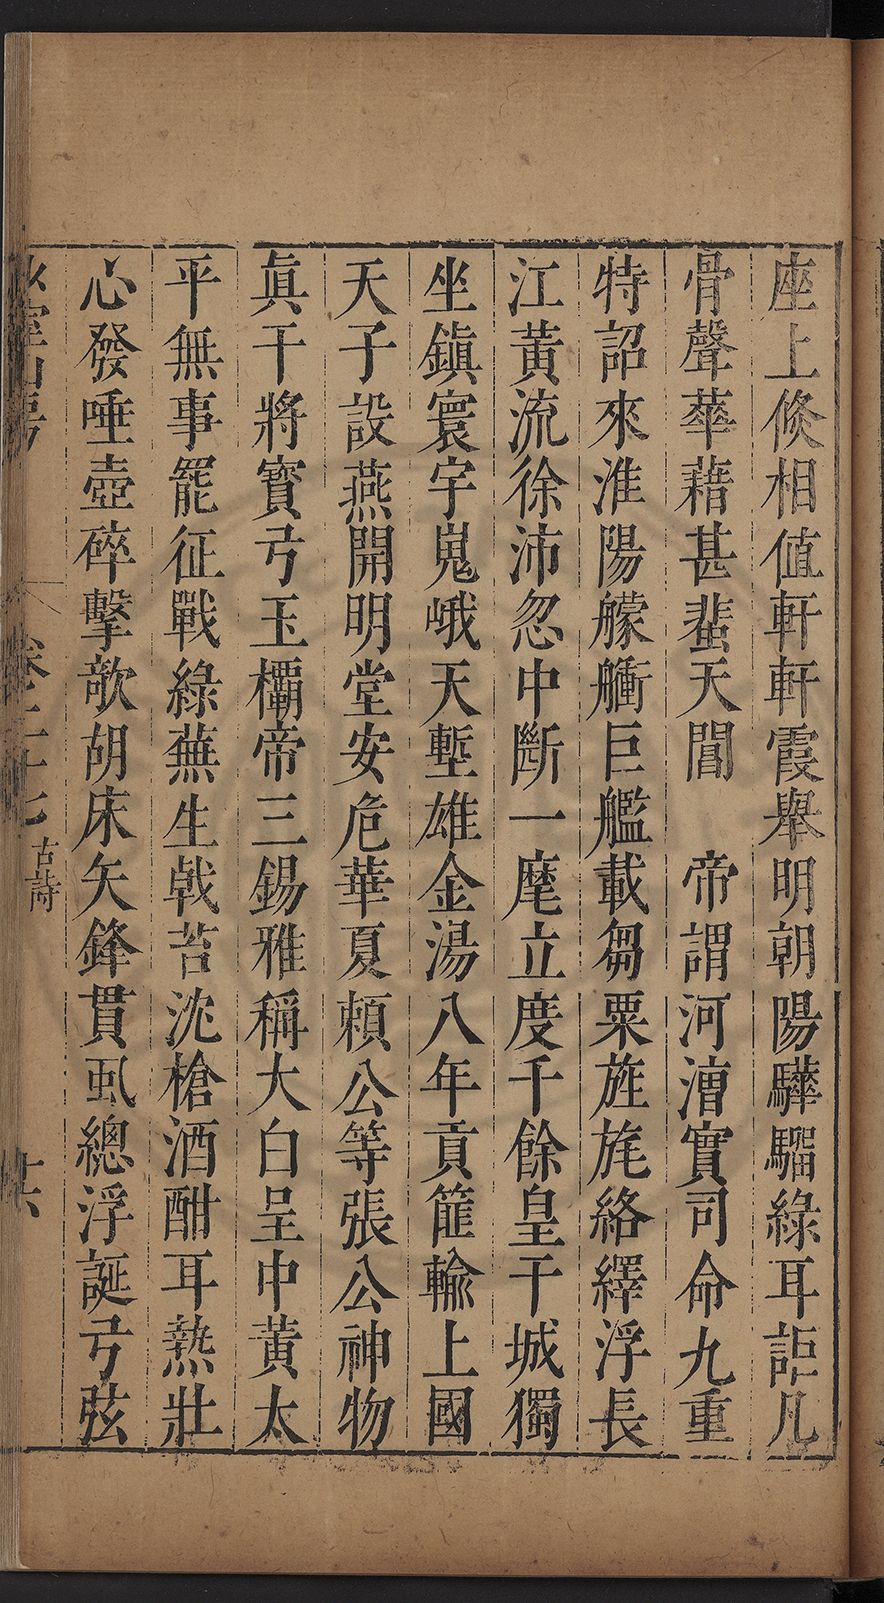 座上倐相值軒軒霞舉明朝陽驊騮綠耳詎凡
骨聲華藉甚蜚天閶　帝謂河漕實司命九重
特詔來淮陽艨艟巨艦載芻粟旌旄絡繹浮長
江黃流徐沛忽中斷一麾立度千餘皇干城獨
坐鎮寰宇嵬峨天塹雄金湯八年貢篚輸上國
天子設燕開明堂安危華夏頼公等張公神物
眞干將寳弓玉欛帝三錫雅稱大白呈中黃太
平無事罷征戰綠蕪生戟苔沈槍酒酣耳熱壯
心發唾壺碎擊敲胡床矢鋒貫虱總浮誕弓弦
卷二十七
古詩